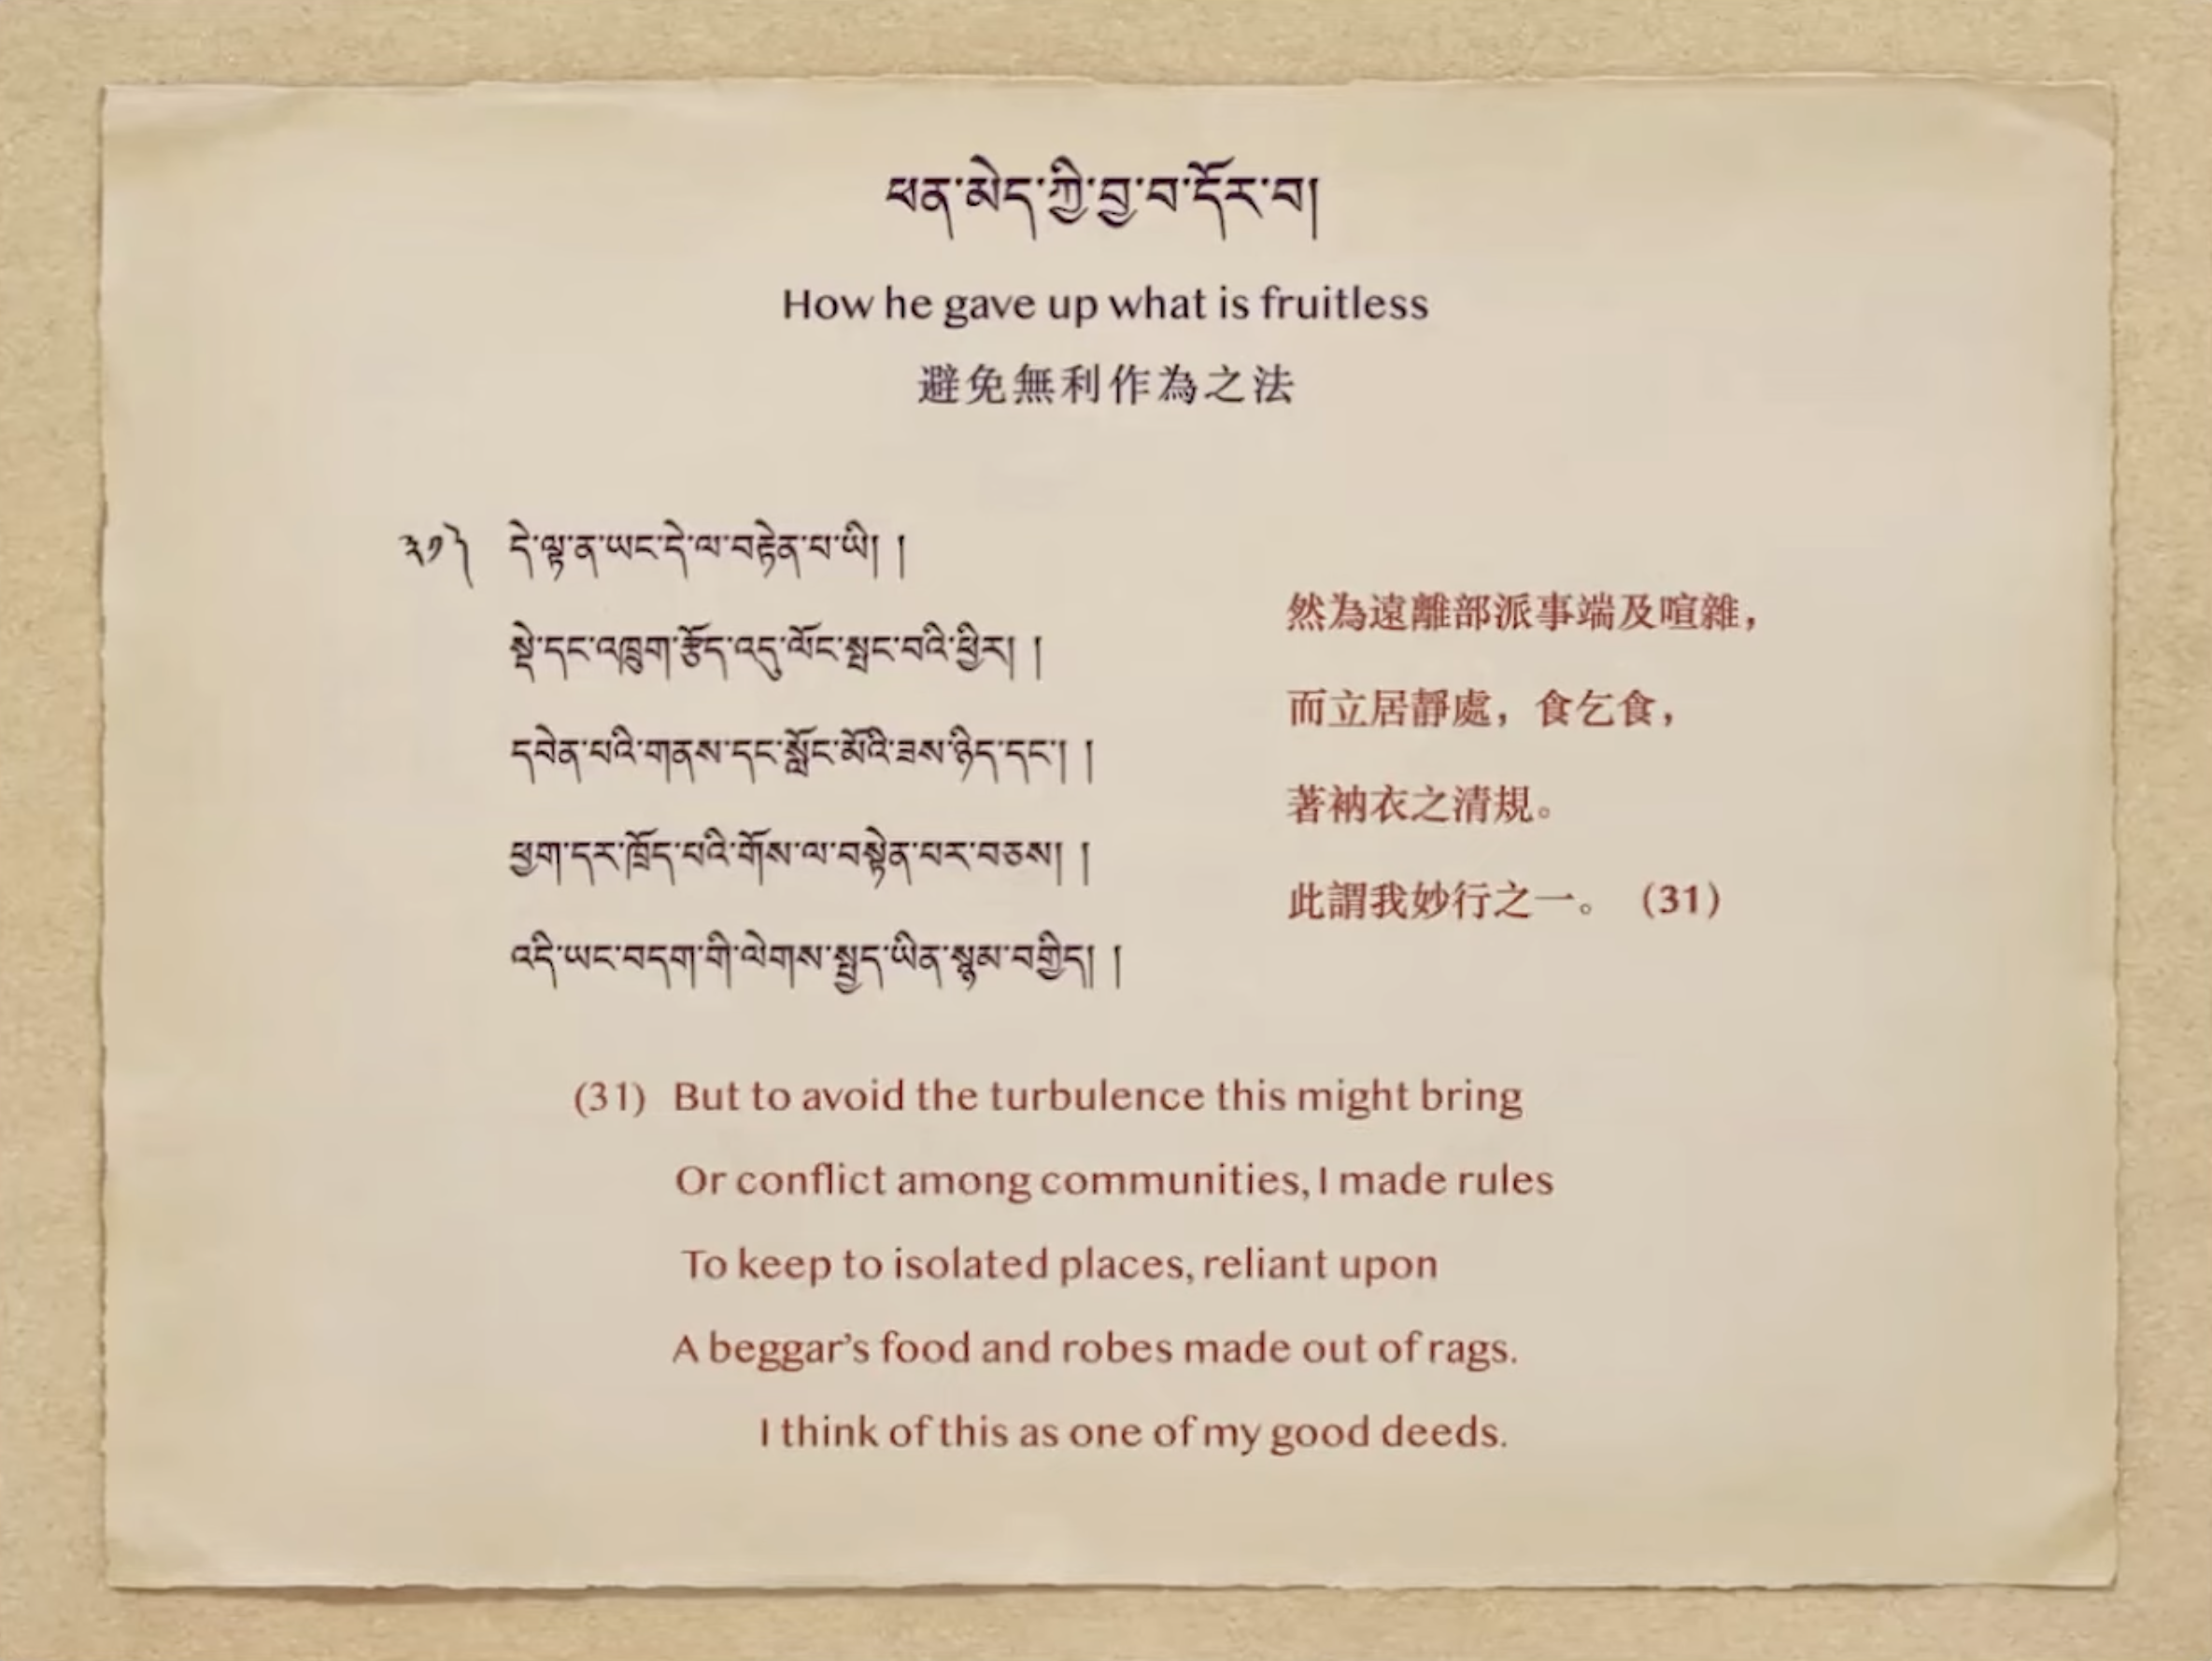 ཕན་མེད་ཀྱི་བྱ་བ་དོར་བ།
How he gave up what is fruitless
避免無利作為之法
༣༡༽ དེ་ལྟ་ན་ཡང་དེ་ལ་བརྟེན་པ་ཡི། །
སྡེ་དང་འཁྲུག་རྩོད་འདུ་ལོང་སྤང་བའི་ཕྱིར། །
དབེན་པའི་གནས་དང་སློང་མོའི་ཟས་ཉིད་དང་། །
ཕྱག་དར་ཁྲོད་པའི་གོས་ལ་བསྟེན་པར་བཅས། །
འདི་ཡང་བདག་གི་ལེགས་སྤྱད་ཡིན་སྙམ་བགྱིད། །
然為遠離部派事端及喧雜，
而立居靜處，食乞食，
著衲衣之清規。
此謂我妙行之一。（31）
(31) But to avoid the turbulence this might bring
Or conflict among communities, I made rules
To keep to isolated places, reliant upon
A beggar’s food and robes made out of rags.
I think of this as one of my good deeds.